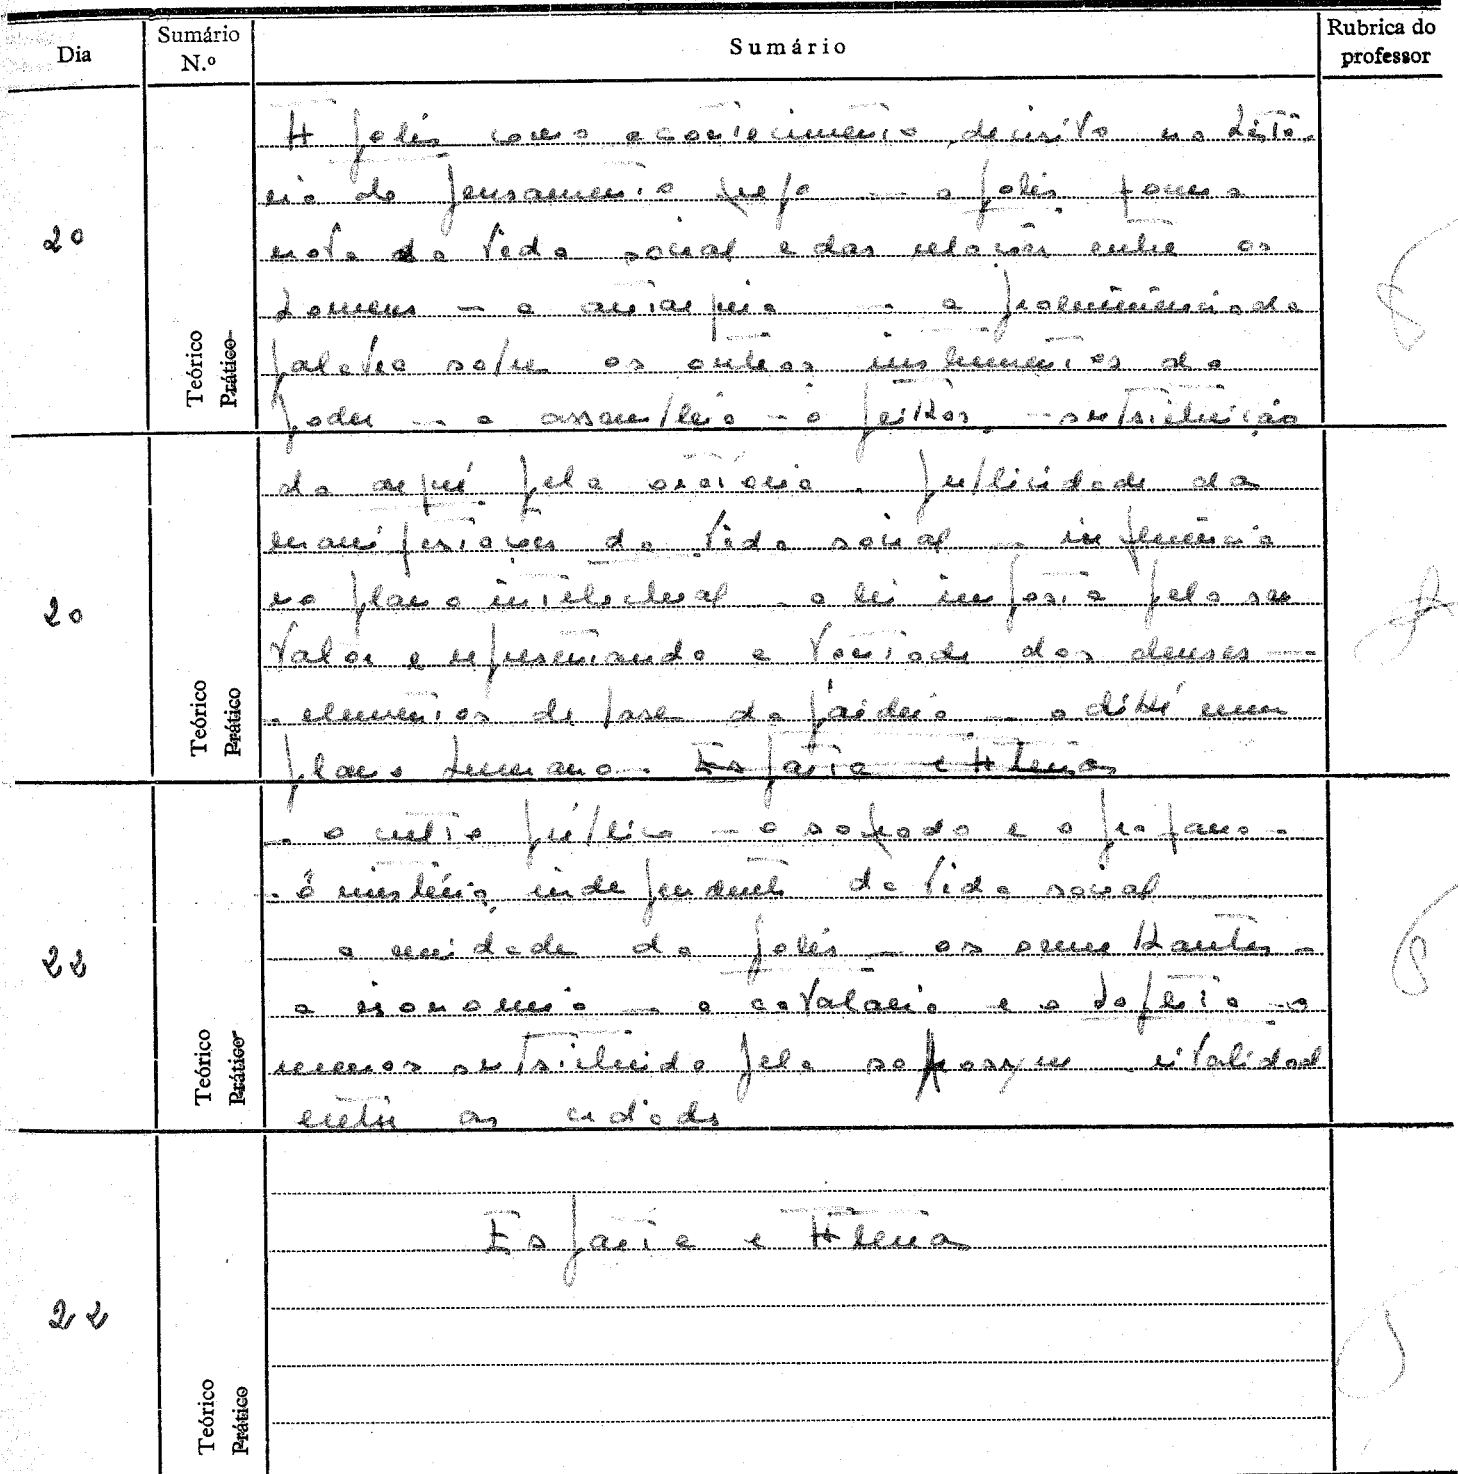 Dia
Sumário N.º
Sumário
Rubrica do professor
20
Teórico
Prático
A polis como acontecimento decisivo na histó-
ria do pensamento grego — a polis forma
nova da vida social e das relações entre os
homens — a — a proeminência da
palavra sobre os outros instrumentos do
poder — a assembleia — a peithos — substituição
20
Teórico
Prático
da pela oratória. publicidade das
manifestações da vida social — influência
no plano intelectual — a lei imposta pelo seu
valor e representando a vontade dos deuses —
— elementos de base da paideia — a dikê num
plano humano. Esparta e Atenas
22
Teórico
Prático
— o culto público — o sagrado e o profano —
— o mistério independente da vida social
a unidade da polis — os semelhantes —
a isonomia — a cavalaria e o hoplita — o
menos substituido pela sophrosyne rivalidade
entre as cidades
22
Teórico
Prático
Esparta e Atenas